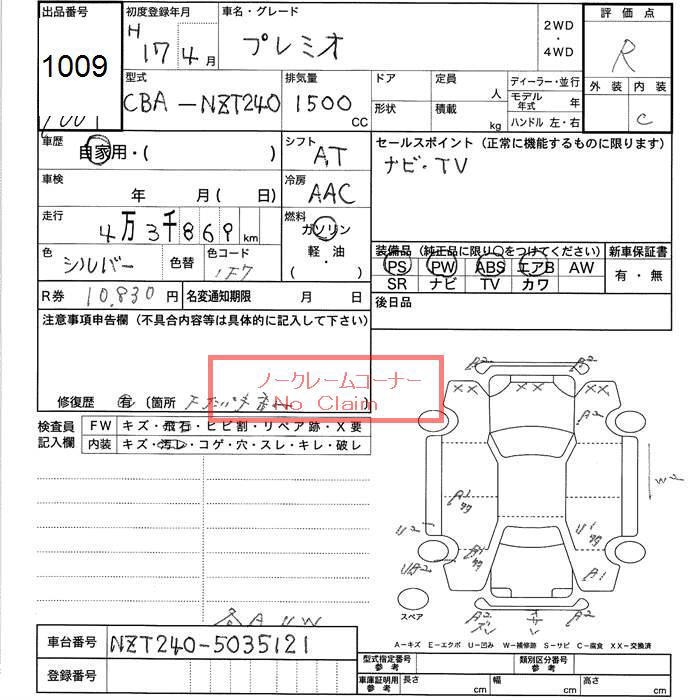 出品番号 初度登録年月 車名・グレード 2WD ・ 4WD 評価点
1009 H 17 4月 プレミオ R
型式 排気量 ドア 定員 人 ディーラー・並行 外装 内装
CBA-NZT240 1500 CC 形状 積載 kg モデル年式 年 C
ハンドル 左・右
車歴 自家用・( ) シフト AT セールスポイント (正常に機能するものに限ります)
ナビ・TV
車検 年 月( 日) 冷房 AAC
走行 4万3千869 km 燃料 ガソリン
軽・油
・( )
色 シルバー 色替 色コード 1F7 装備品 (純正品に限り○をつけてください) 新車保証書
PS PW ABS エアB AW 有・無
SR ナビ TV カワ
R券 10,830 円 名変通知期限 月 日 後日品
注意事項申告欄 (不具合内容等は具体的に記入して下さい)
ノークレームコーナー
No Claim
修復歴 有 〔箇所
検査員記入欄 FW キズ・飛石・ヒビ割・リペア跡・X要
内装 キズ・汚レ・コゲ・穴・スレ・キレ・破レ
A2 A2
XX XX XX
A2
A1
U1
A1
UB2
スペア
A2 A2
A-キズ E-エクボ U-凹み W-補修跡 S-サビ C-腐食 XX-交換済
車台番号 NZT240-5035121
登録番号
型式指定番号 参考 類別区分番号 参考
車庫証明用 参考 長さ cm 幅 cm 高さ cm